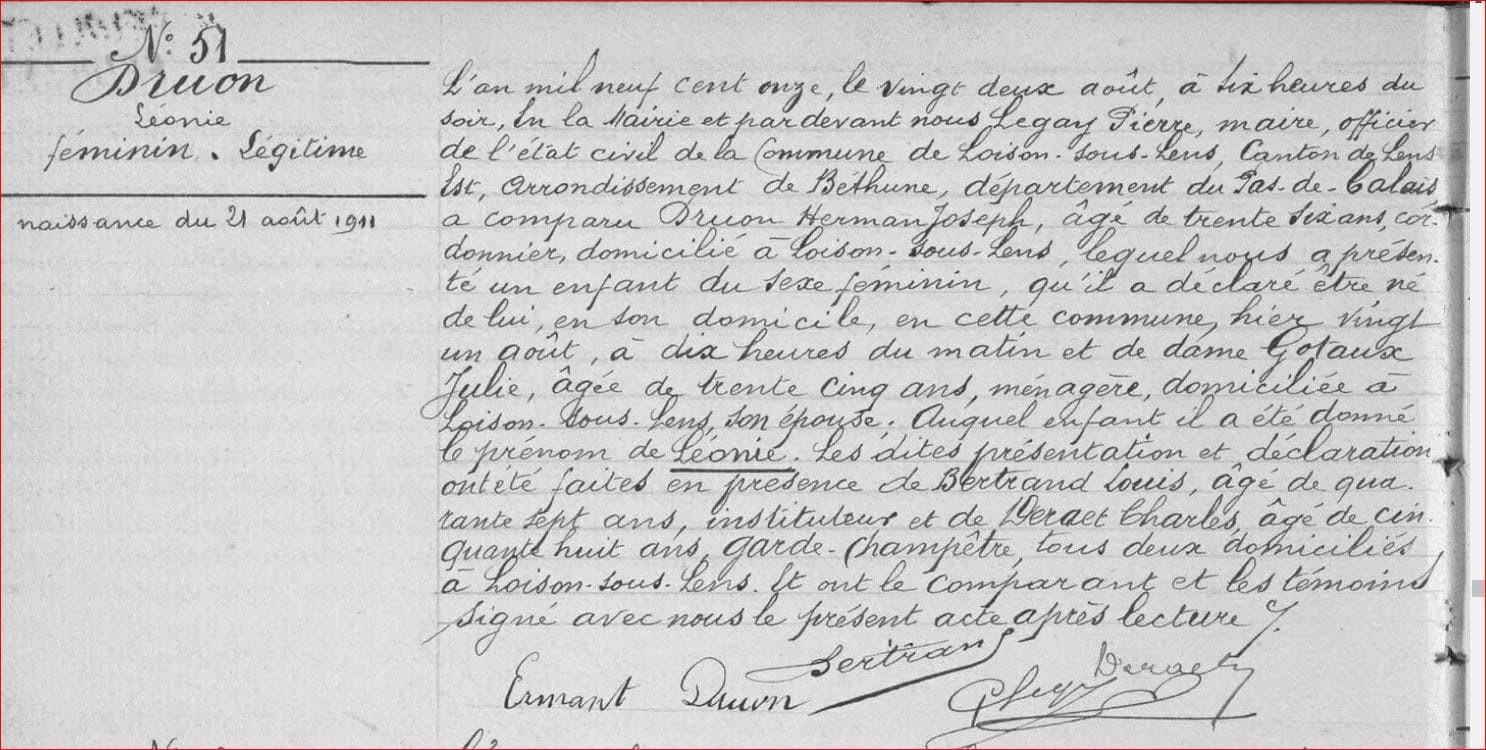 N° 51
Druon
Léonie
féminin. Légitime
naissance du 21 août 1911
L'an mil neuf cent onze, le vingt deux août, à six heures du
soir, En la Mairie et par devant nous Legay Pierre, maire, officier
de l'état civil de la Commune de Loison-sous-Lens, Canton de Lens
Est, Arrondissement de Béthune, département du Pas-de-Calais
a comparu Druon Herman Joseph, âgé de trente six ans, cor-
donnier, domicilié à Loison-sous-Lens, lequel nous a présen-
té un enfant du sexe féminin, qu'il a déclaré être né
de lui, en son domicile, en cette commune, hier vingt
un août, à dix heures du matin et de dame Gotaux
Julie, âgée de trente cinq ans, ménagère, domiciliée à
Loison-sous-Lens, son épouse. Auquel enfant il a été donné
le prénom de Léonie. Les dites présentation et déclaration
ont été faites en présence de Bertrand Louis, âgé de qua-
rante sept ans, instituteur et de Deraet Charles, âgé de cin-
quante huit ans, garde-Champêtre, tous deux domiciliés
à Loison-sous-Lens. Et ont le comparant et les témoins
signé avec nous le présent acte après lecture
Ermant Druon Bertrand